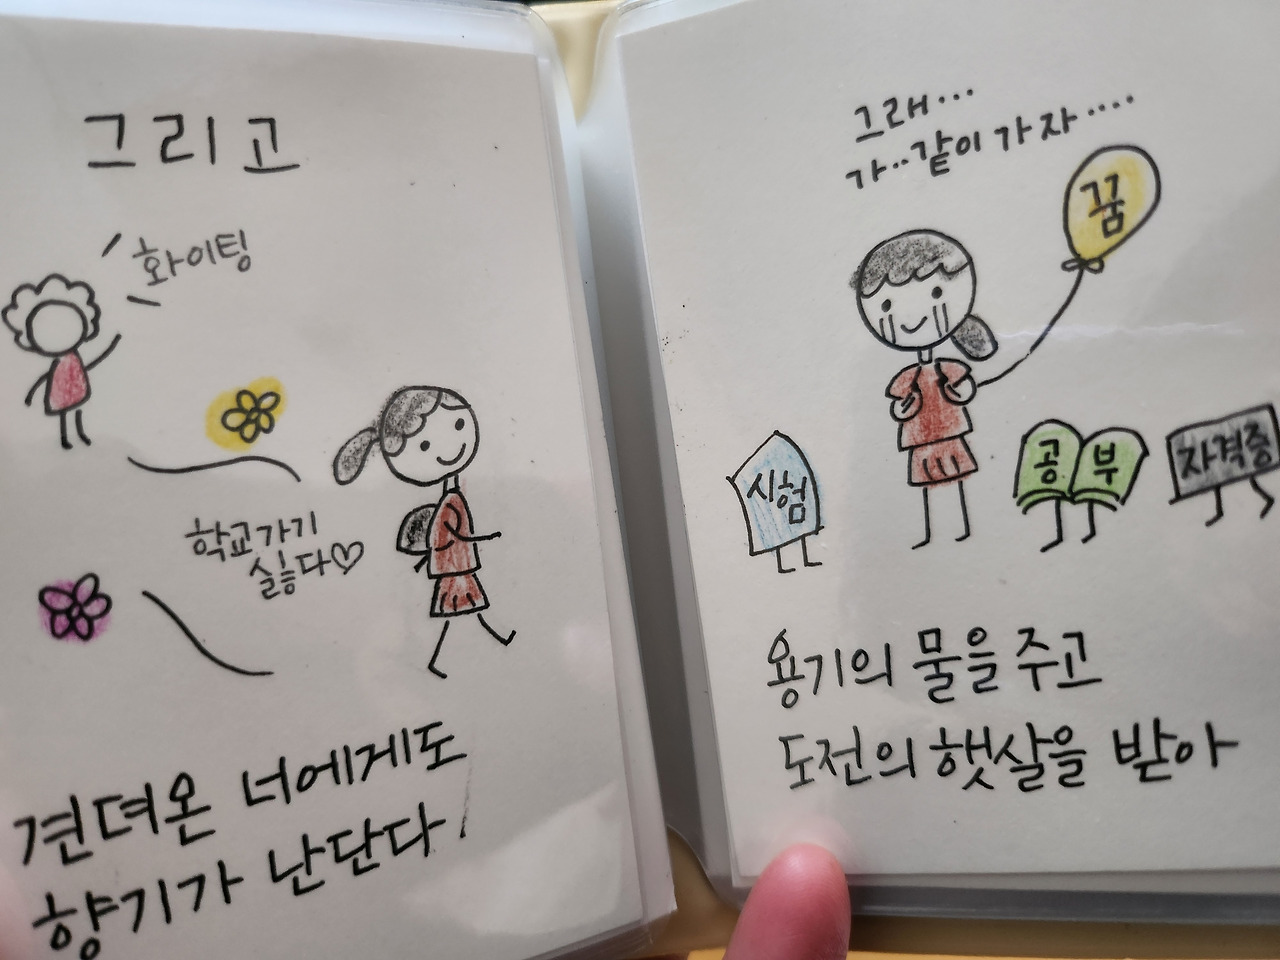 그리고
화이팅
학교가기
싫다♡
견뎌온 너에게도
향기가 난단다
그래...
가..같이 가자....
꿈
시험
공부
자격증
용기의 물을 주고
도전의 햇살을 받아